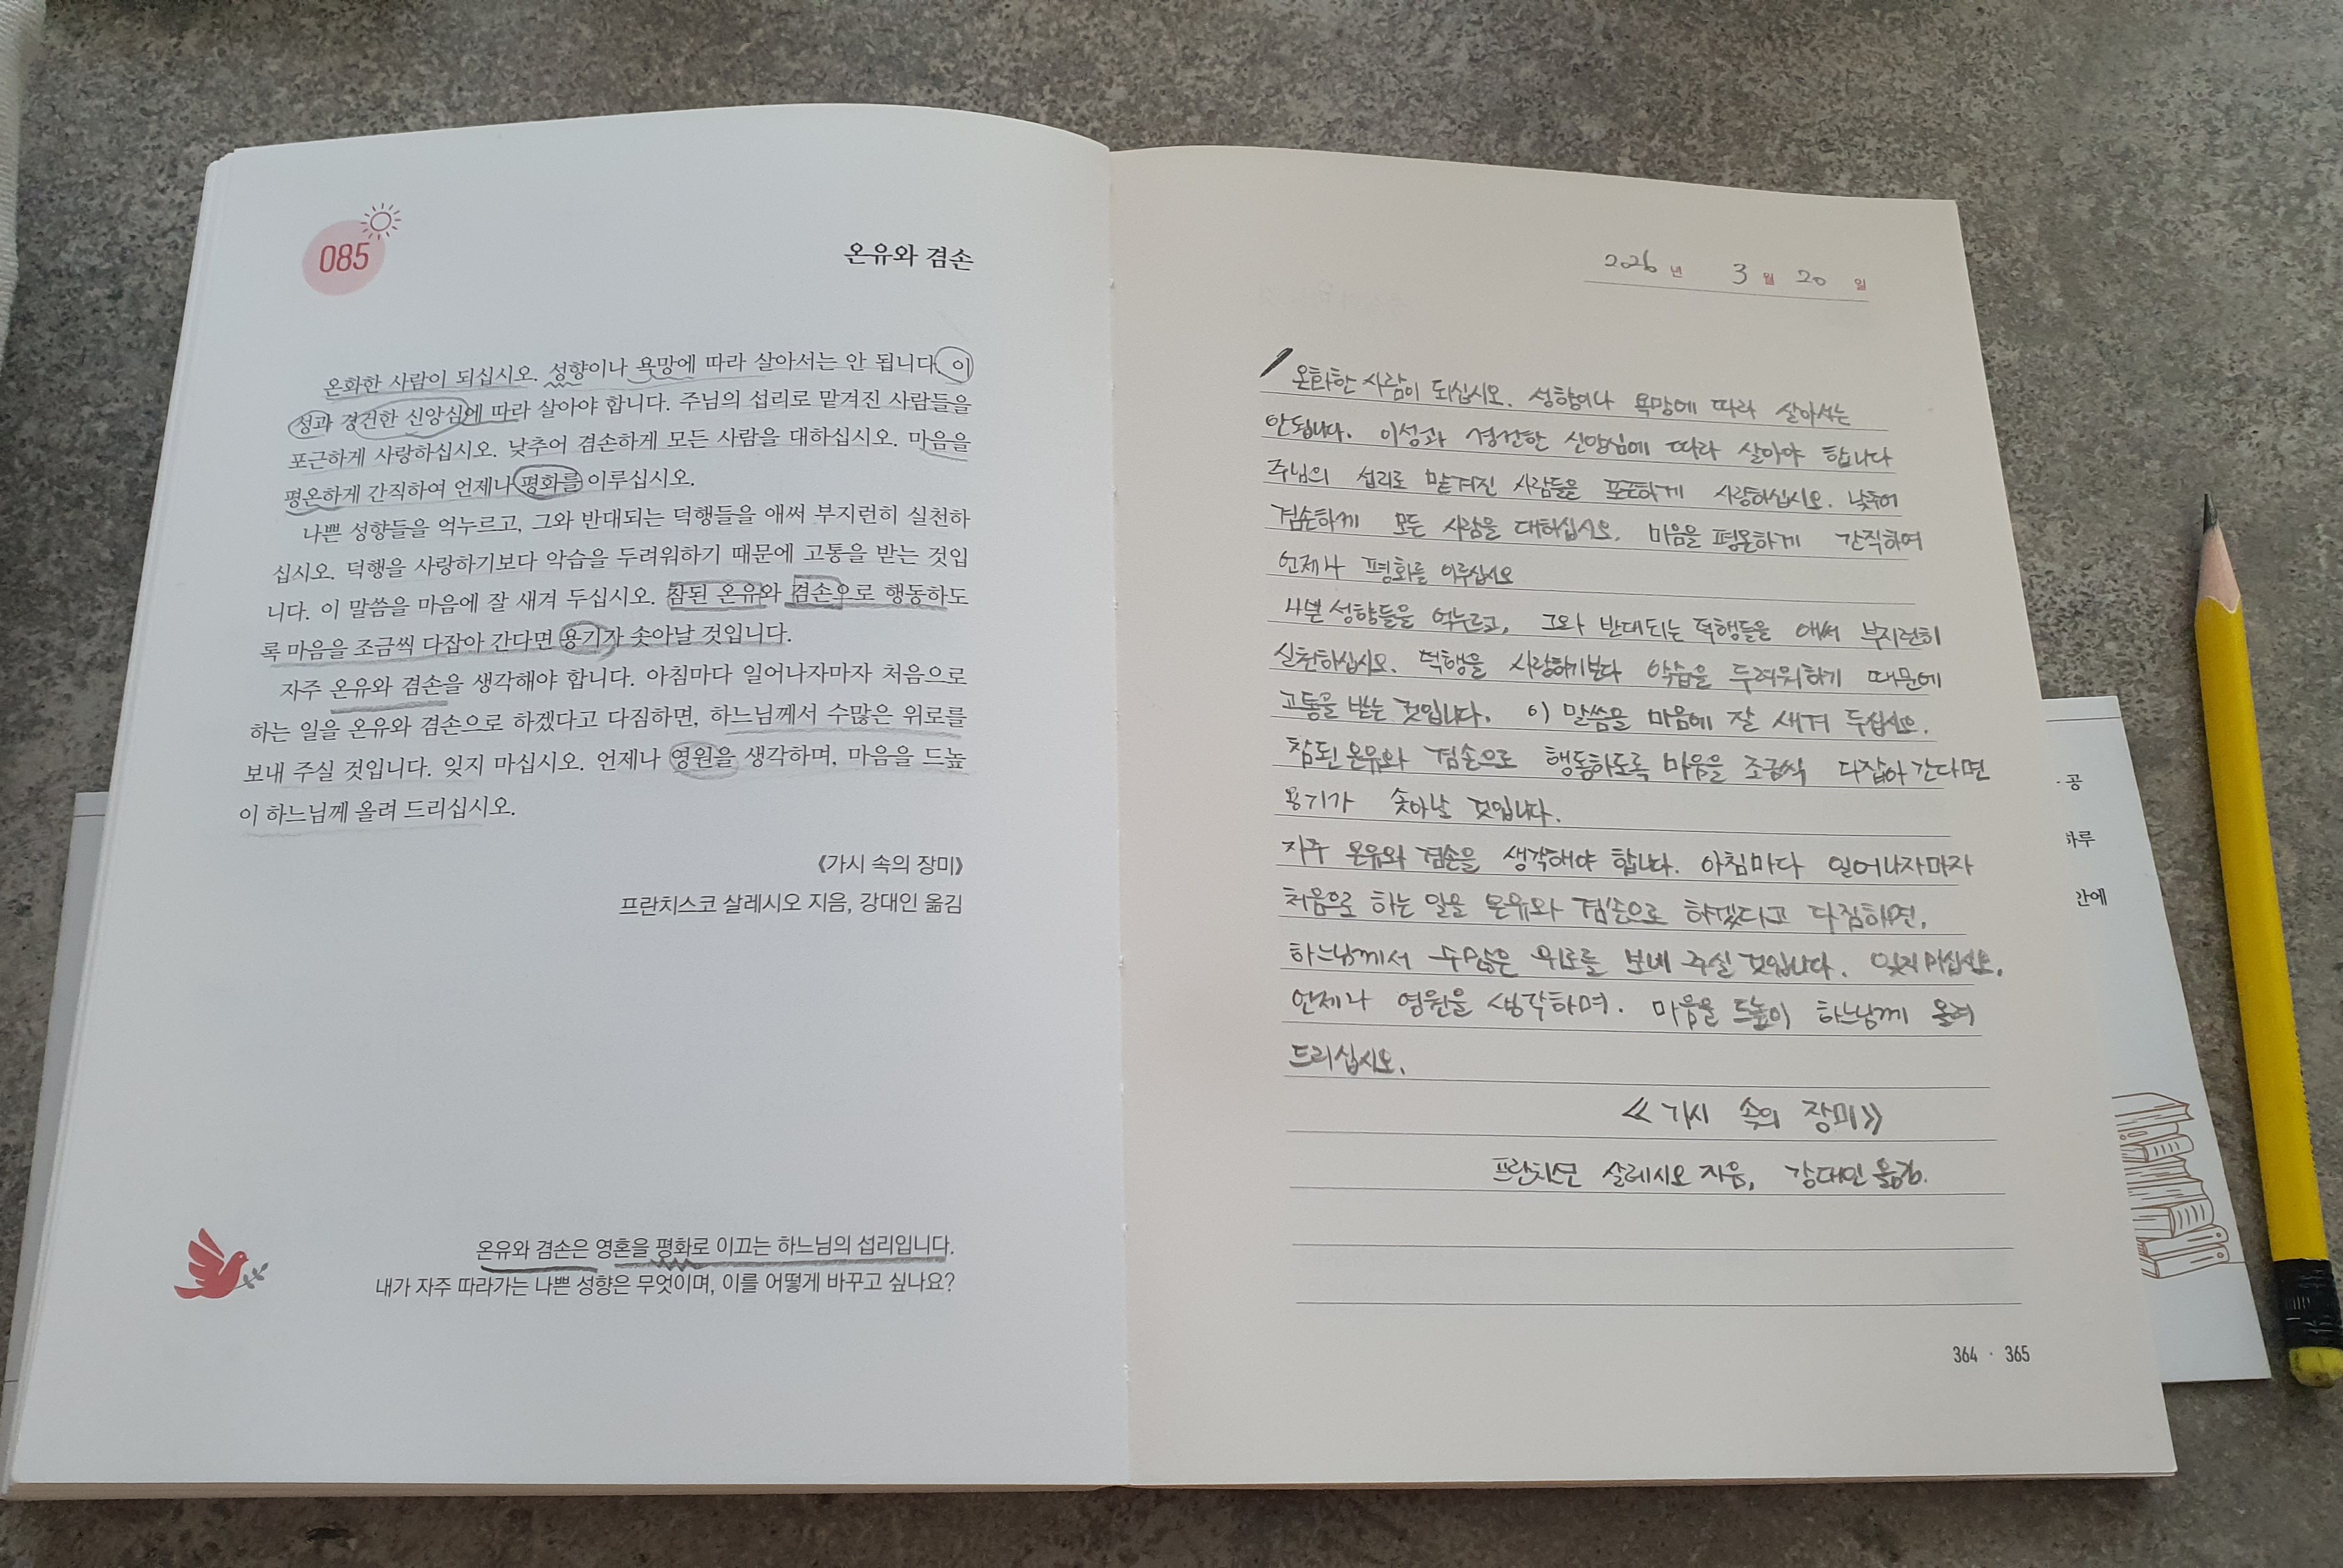 085
온유와 겸손
온화한 사람이 되십시오. 성향이나 욕망에 따라 살아서는 안 됩니다. 이
성과 경건한 신앙심에 따라 살아야 합니다. 주님의 섭리로 맡겨진 사람들을
포근하게 사랑하십시오. 낮추어 겸손하게 모든 사람을 대하십시오. 마음을
평온하게 간직하여 언제나 평화를 이루십시오.
나쁜 성향들을 억누르고, 그와 반대되는 덕행들을 애써 부지런히 실천하
십시오. 덕행을 사랑하기보다 악습을 두려워하기 때문에 고통을 받는 것입
니다. 이 말씀을 마음에 잘 새겨 두십시오. 참된 온유와 겸손으로 행동하도
록 마음을 조금씩 다잡아 간다면 용기가 솟아날 것입니다.
자주 온유와 겸손을 생각해야 합니다. 아침마다 일어나자마자 처음으로
하는 일을 온유와 겸손으로 하겠다고 다짐하면, 하느님께서 수많은 위로를
보내 주실 것입니다. 잊지 마십시오. 언제나 영원을 생각하며, 마음을 드높
이 하느님께 올려 드리십시오.
《가시 속의 장미》
프란치스코 살레시오 지음, 강대인 옮김
온유와 겸손은 영혼을 평화로 이끄는 하느님의 섭리입니다.
내가 자주 따라가는 나쁜 성향은 무엇이며, 이를 어떻게 바꾸고 싶나요?
2026년 3월 20일
온화한 사람이 되십시오. 성향이나 욕망에 따라 살아서는
안됩니다. 이성과 경건한 신앙심에 따라 살아야 합니다
주님의 섭리로 맡겨진 사람들을 포근하게 사랑하십시오. 낮추어
겸손하게 모든 사람을 대하십시오. 마음을 평온하게 간직하여
언제나 평화를 이루십시오
나쁜 성향들을 억누르고, 그와 반대되는 덕행들을 애써 부지런히
실천하십시오. 덕행을 사랑하기보다 악습을 두려워하기 때문에
고통을 받는 것입니다. 이 말씀을 마음에 잘 새겨 두십시오.
참된 온유와 겸손으로 행동하도록 마음을 조금씩 다잡아 간다면
용기가 솟아날 것입니다.
자주 온유와 겸손을 생각해야 합니다. 아침마다 일어나자마자
처음으로 하는 일을 온유와 겸손으로 하겠다고 다짐하면,
하느님께서 수많은 위로를 보내 주실 것입니다. 잊지 마십시오.
언제나 영원을 생각하며. 마음을 드높이 하느님께 올려
드리십시오.
《가시 속의 장미》
살레시오 지음, 강대인 옮김.
364 · 365
· 공
하루
간에